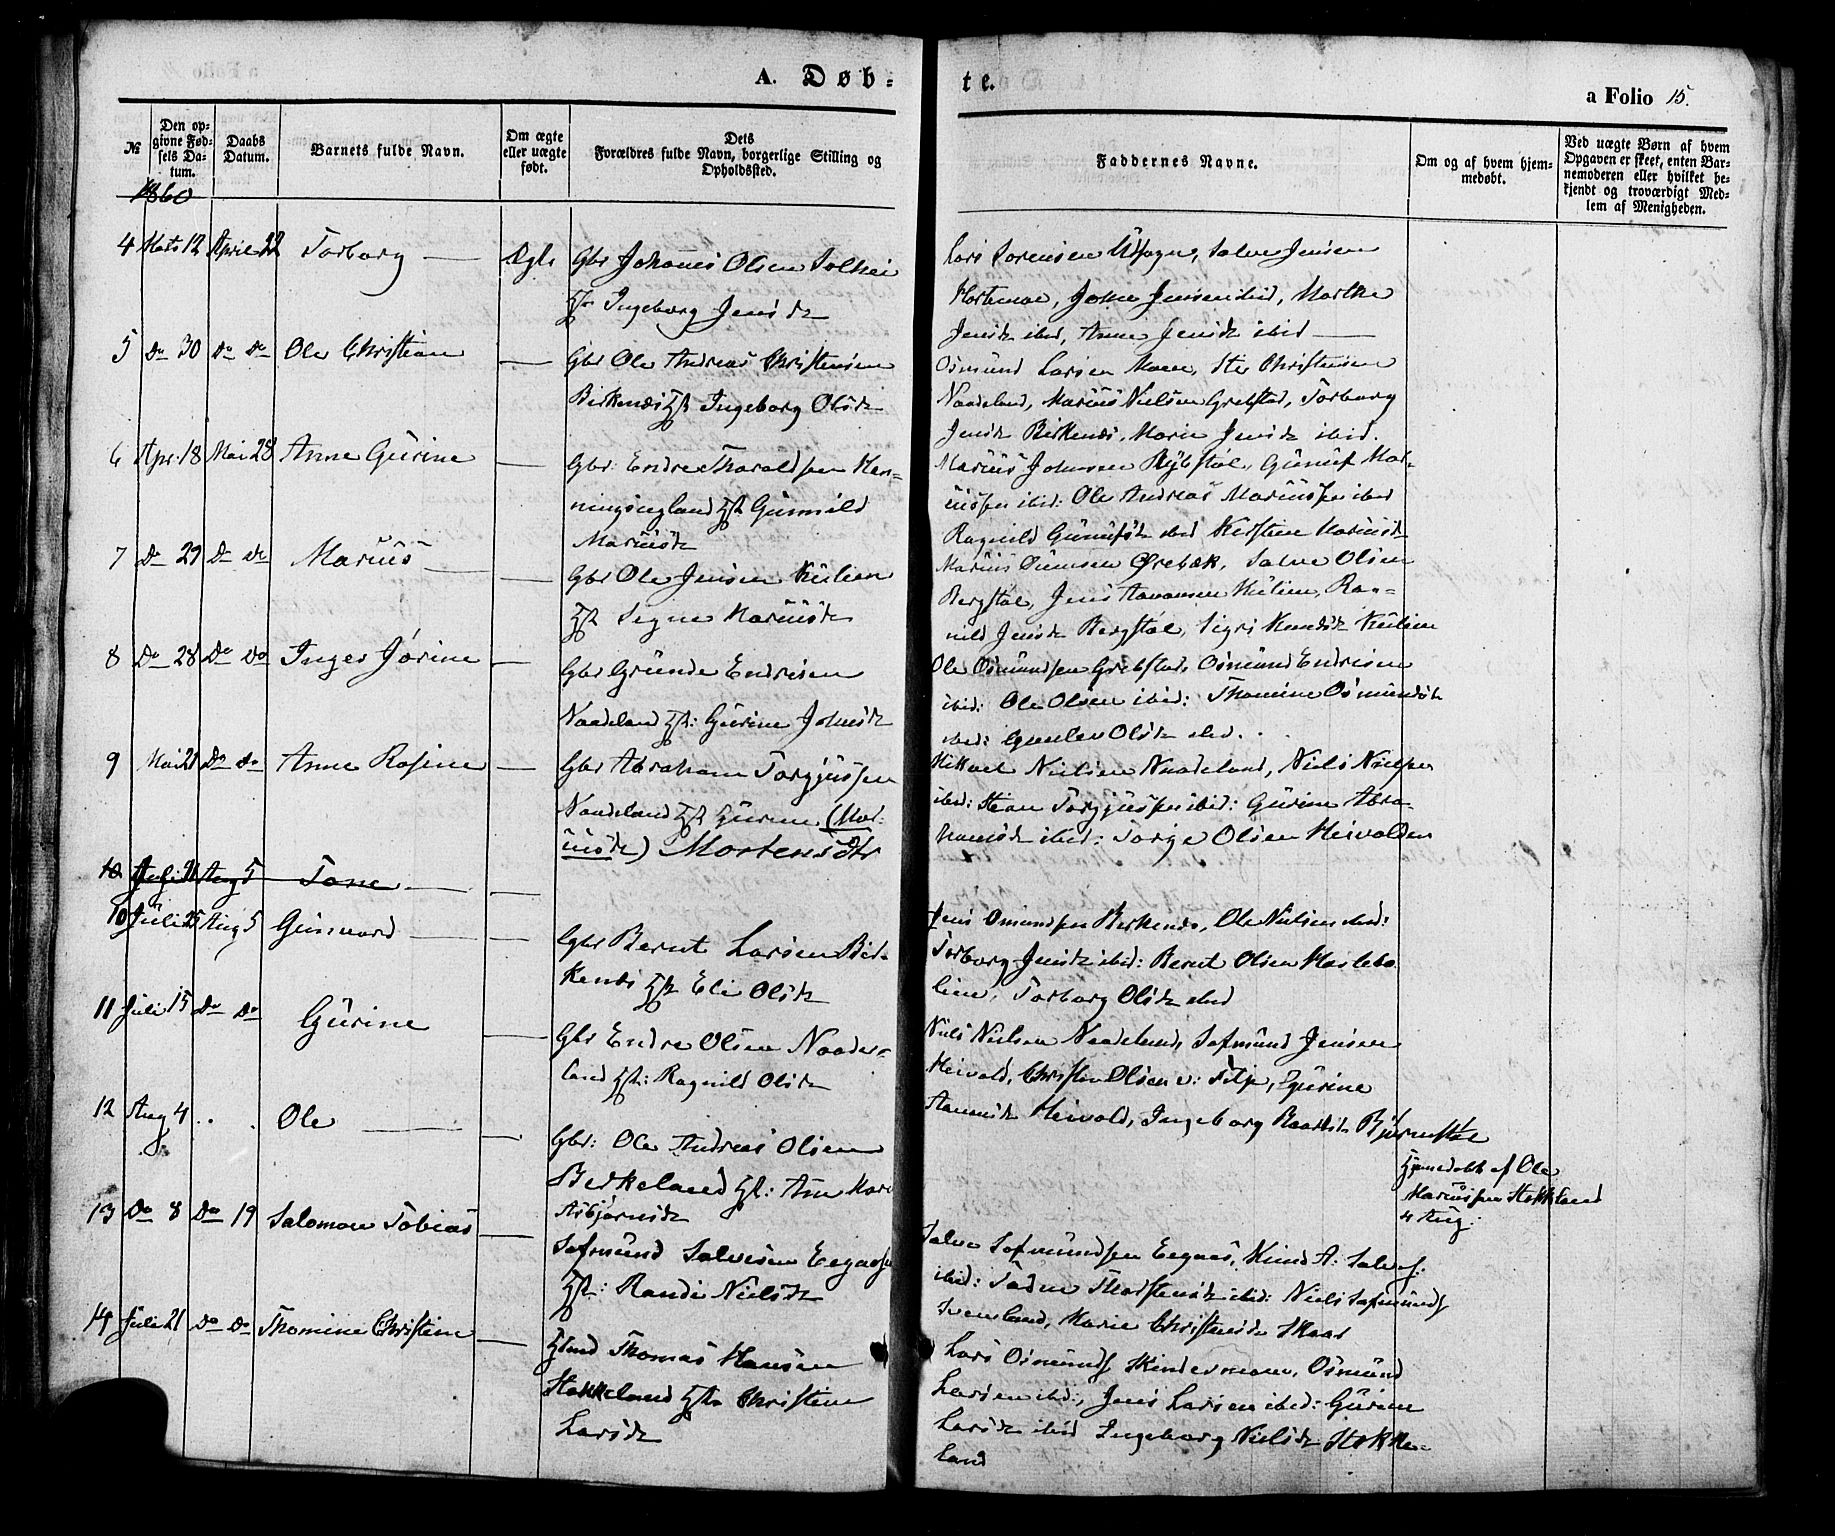 A. Døb-
te.
a Folio 15.
№
Den opgivne Fødsels Datum.
Daabs Datum.
Barnets fulde Navn.
Om ægte eller uægte født.
Dets Forældres fulde Navn, borgerlige Stilling og Opholdssted.
Faddernes Navne.
Om og af hvem hjemmedøbt.
Ved uægte Børn af hvem Opgaven er skeet, enten Barnemoderen eller hvilket bekjendt og troværdigt Medlem af Menigheden.
1860
4 Marts 12 April 22 Torborg Ægte Gbr Johanes Olsen Solhei
Hst Ingeborg Jensdt
Lars Sørensen Usogn, Salve Jensen
John Jensen ibid, Marthe
Jensdt ibid, Anne Jensdt ibid
5 Do 30 Do Do Ole Christian — Gbr Ole Andreas Christensen
Birkenæs Hst Ingeborg Olsdt
Osmund Larsen Moen, Christensen
Naadeland, Marius Nielsen Grebstad, Torborg
Jensdt Berkenæs, Marie Jensdt ibid.
6 Apr. 18 Mai 28 Anne Gurine — Gbr: Endre Tharaldsen Hen-
ningsegland Hst Gunnild
Mariusdt
Marius Johnsen Rybstøl, Gunuf Mar-
iussen ibid: Ole Andreas Mariussen ibid
Ragnild Gunufsdt ibid Kirstine Mariusdt
7 Do 29 Do Do Marius — Gbr Ole Jensen Kulien
Hst Signe Mariusdt
Marius Ørebæk, Salve Olsen
Bergstøl, Jens Aanonsen Kulien, Rag-
nild Jensdt Bergstøl, Sigri Knudsdt Kulien
8 Do 28 Do Do Inger Jørine — Gbr Grunde Endresen
Naadeland Hst: Gurine Johnsdt
Ole Osmundsen Grebstad, Osmund Endresen
ibid: Ole Olsen ibid: Thomine Osmundsdt
ibid: Olsdt ibid.
9 Mai 21 Do Do Anne Rosine — Gbr Abraham Torgjussen
Naadeland Hst Gurine (Mar-
iusdt) Mortensdtr
Mikkel Nielsen Naadeland, Niels Nielsen
ibid: Stian Torgjussen ibid: Gurine Abra-
hamsdt ibid: Torge Olsen Heivolden
10 Aug 5 Tone —
10 Juli 25 Aug 5 Gunvord — Gbr Bernt Larsen Bir-
kenæs Hst Eli Olsdt
Jens Omundsen Berkenæs, Ole Nielsen ibid:
Torborg Jensdt ibid: Bernt Olsen
lien, Torborg Olsdt ibid
11 Juli 15 Do Do Gurine — Gbr Endre Olsen Naade-
land Hst: Ragnild Olsdt
Niels Nielsen Naadeland, Sofmund Jensen
Heivold, Christen Olsen Gurine
Heivold, Ingeborg Bjørnstøl
12 Aug 4 . . Ole — Gbr: Ole Andreas Olsen
Birkeland Hst: Ane Mari
Asbjørnsdt
Hjemedøbt af Ole
Mariussen Stokkeland
4 Aug:
13 Do 8 Do 19 Salomon Tobias — Sofmund Salvesen Eegnes
Hst: Randi Nielsdt
Salve Sofmundsen Eegnæs, Knud A: Salves:
ibid: Thorstensdt ibid: Niels Sofmunds
Sveneland, Marie Christensdt Skaar
14 Juli 21 Do Do Thomine Christine — Thomas Hansen
Stokkeland Hst Christine
Larsdt
Lars Osmunds Kindermoen, Osmund
Larsen ibid:, Jens Larsen ibid: Gurine
Larsdt ibid Ingeborg Nielsdt Stokke-
land